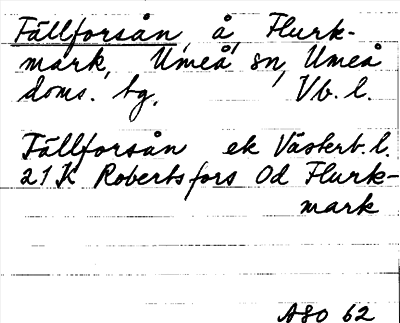 Fällforsån, å, Flurk-
mark, Umeå sn, Umeå
doms. tg, Vb. l.
Fällforsån ek Västerb. l.
21 K Robertsfors 0d Flurk-
mark
ASO 62